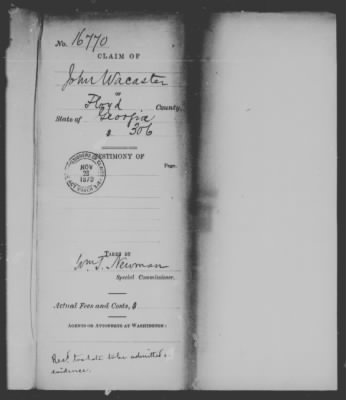 No. 16770
CLAIM OF
John Wacaster
Floyd County,
State of Georgia
$ 306
TESTIMONY OF
Page.
NOV
28
TAKEN BY
Wm. T. Newman
Special Commissioner.
Actual Fees and Costs, $
AGENTS OR ATTORNEYS AT WASHINGTON:
to be admitted
evidence.